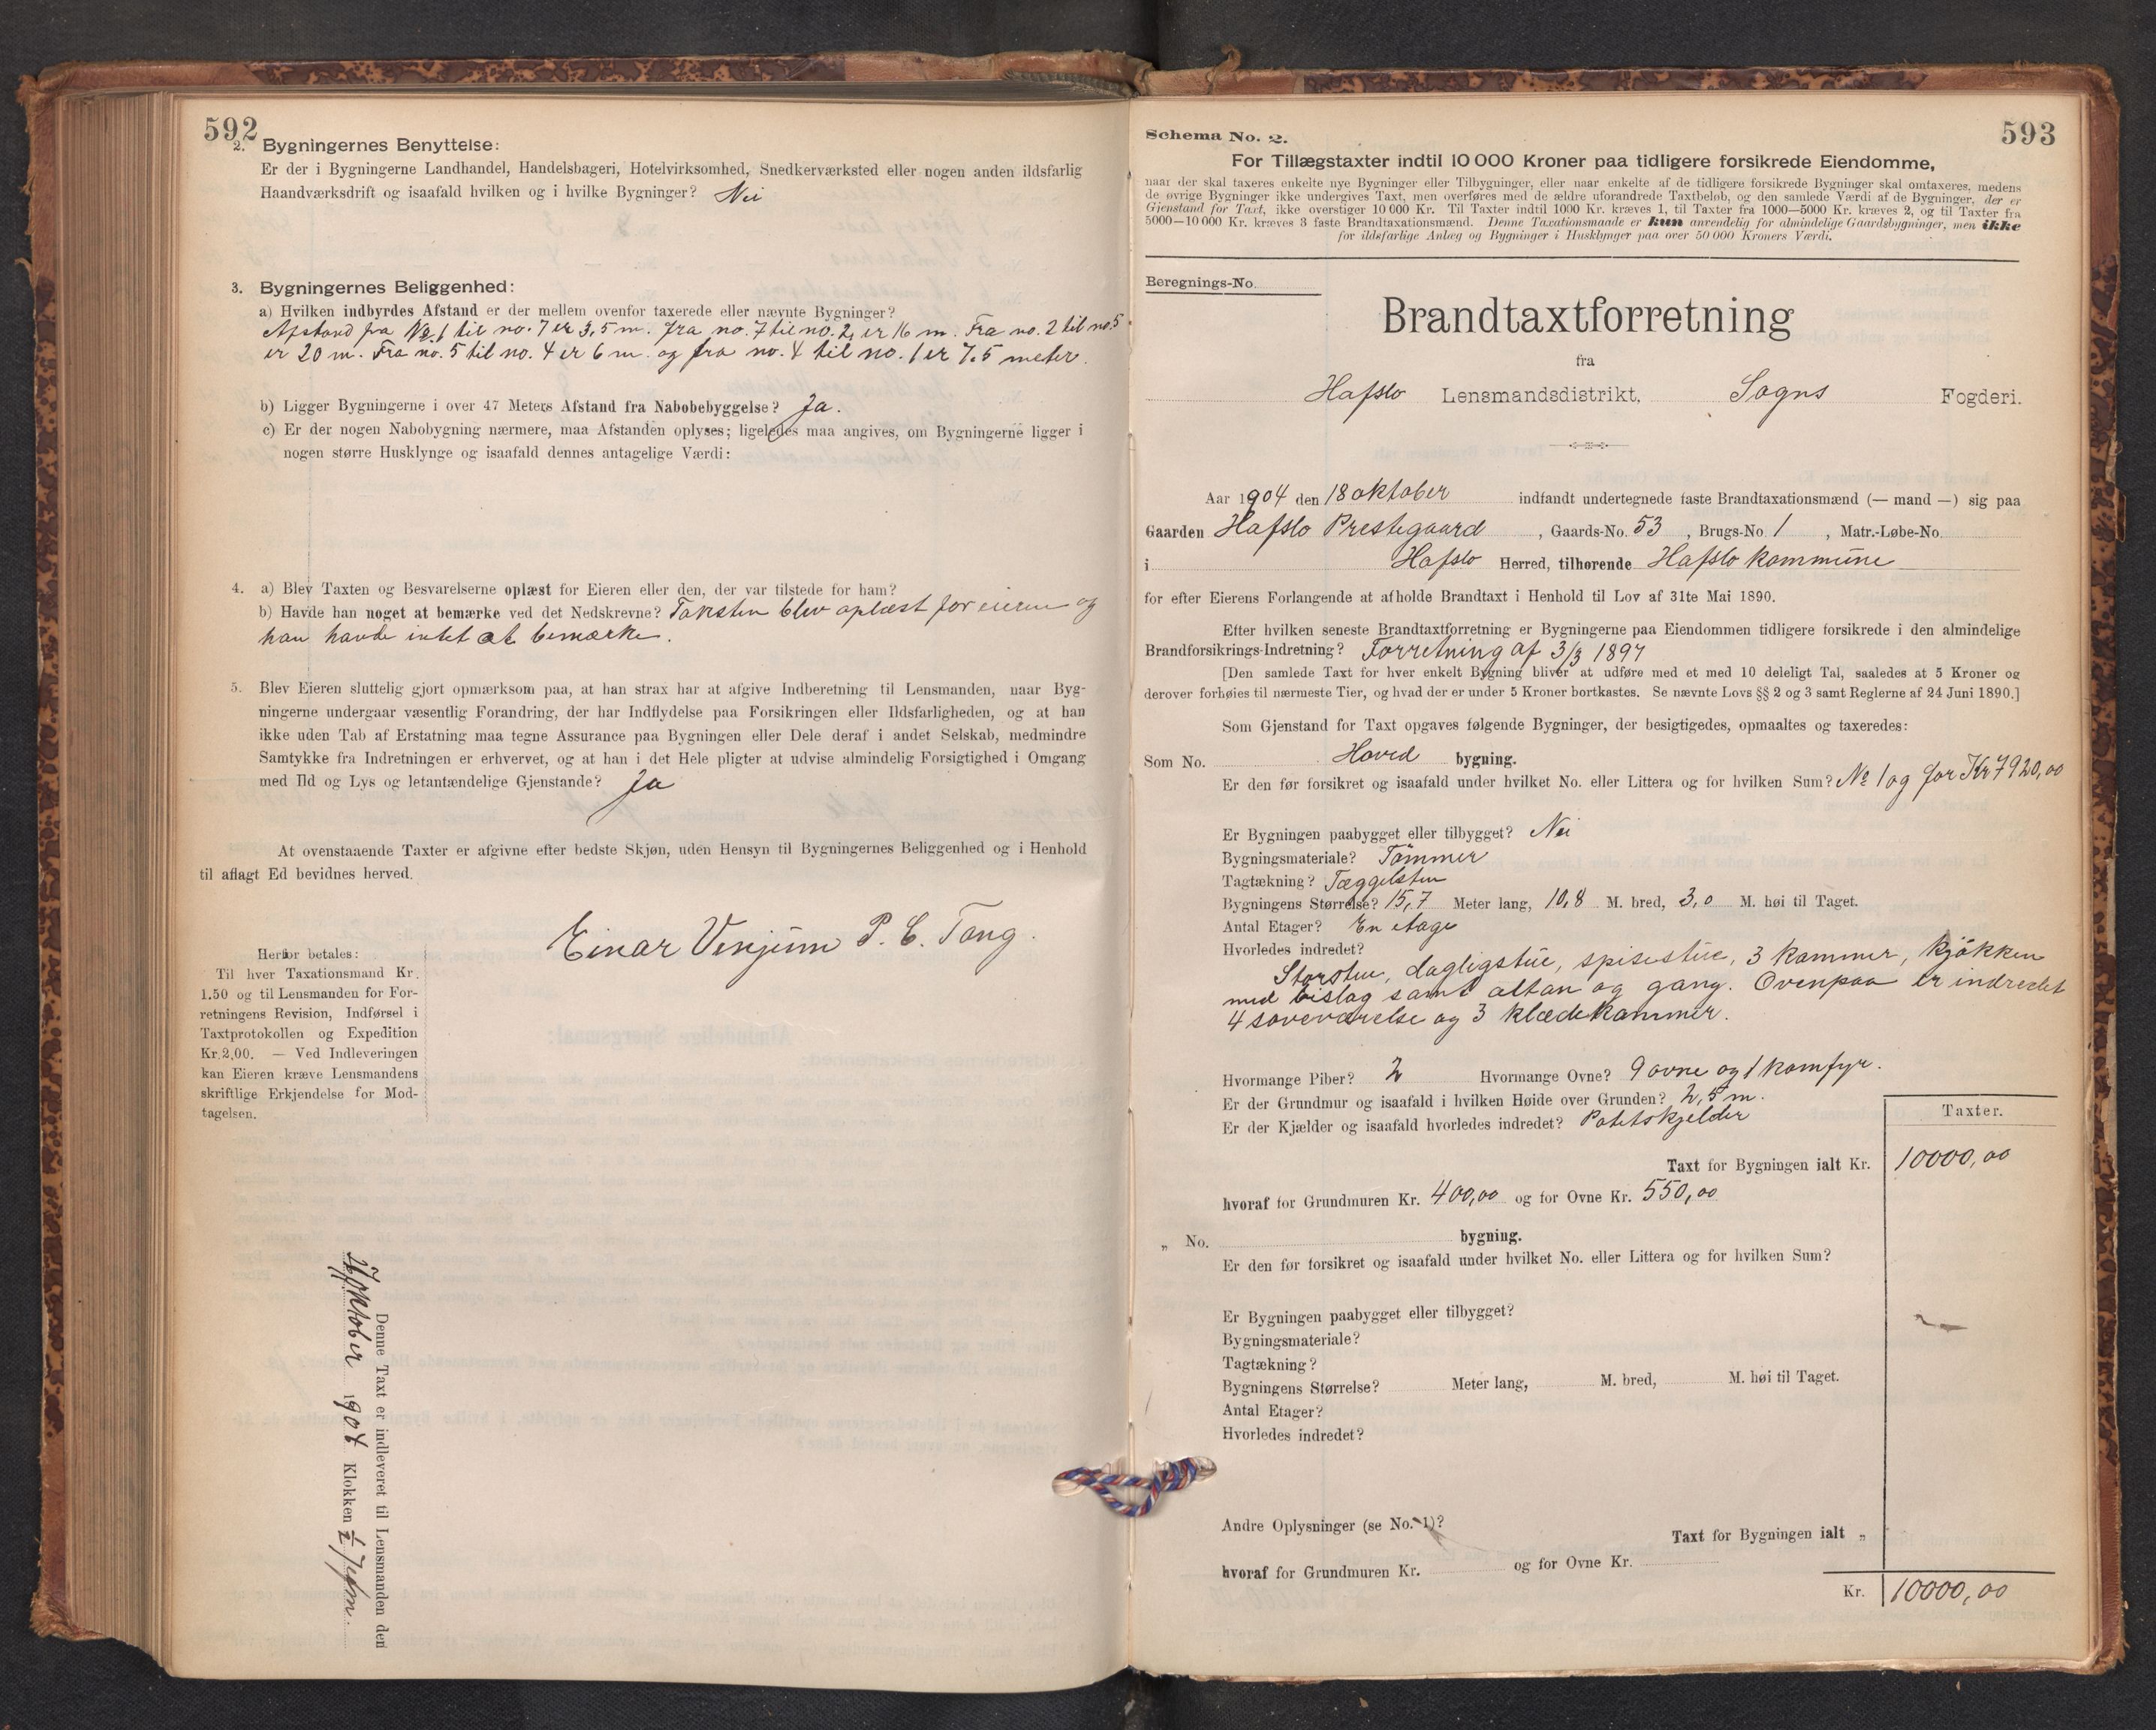 592
2. Bygningernes Benyttelse:
Er der i Bygningerne Landhandel, Handelsbageri, Hotelvirksomhed, Snedkerværksted eller nogen anden ildsfarlig
Haandværksdrift og isaafald hvilken og i hvilke Bygninger? Nei
3. Bygningernes Beliggenhed:
a) Hvilken indbyrdes Afstand er der mellem ovenfor taxerede eller nævnte Bygninger?
Afstand fra No. 1 til no. 7 er 3,5 m. fra no. 7 til no. 2 er 16 m. Fra no. 2 til no. 5
er 20 m. Fra no. 5 til no. 4 er 6 m. og fra no. 4 til no. 1 er 7,5 meter.
b) Ligger Bygningerne i over 47 Meters Afstand fra Nabobebyggelse? Ja.
c) Er der nogen Nabobygning nærmere, maa Afstanden oplyses; ligeledes maa angives, om Bygningerne ligger i
nogen større Husklynge og isaafald dennes antagelige Værdi:
4. a) Blev Taxten og Besvarelserne oplæst for Eieren eller den, der var tilstede for ham?
b) Havde han noget at bemærke ved det Nedskrevne? Taksten blev oplæst for eieren og
han havde intet at bemærke.
5. Blev Eieren sluttelig gjort opmærksom paa, at han strax har at afgive Indberetning til Lensmanden, naar Byg-
ningerne undergaar væsentlig Forandring, der har Indflydelse paa Forsikringen eller Ildsfarligheden, og at han
ikke uden Tab af Erstatning maa tegne Assurance paa Bygningen eller Dele deraf i andet Selskab, medmindre
Samtykke fra Indretningen er erhvervet, og at han i det Hele pligter at udvise almindelig Forsigtighed i Omgang
med Ild og Lys og letantændelige Gjenstande? Ja
At ovenstaaende Taxter er afgivne efter bedste Skjøn, uden Hensyn til Bygningernes Beliggenhed og i Henhold
til aflagt Ed bevidnes herved.
Einar Venjum P. C. Tang.
Herfor betales:
Til hver Taxationsmand Kr.
1.50 og til Lensmanden for For-
retningens Revision, Indførsel i
Taxtprotokollen og Expedition
Kr. 2,00. — Ved Indleveringen
kan Eieren kræve Lensmandens
skriftlige Erkjendelse for Mod-
tagelsen.
Denne Taxt er indleveret til Lensmanden den
oktober 1904 Klokken ½ 7 efm.
593
Schema No. 2.
For Tillægstaxter indtil 10 000 Kroner paa tidligere forsikrede Eiendomme,
naar der skal taxeres enkelte nye Bygninger eller Tilbygninger, eller naar enkelte af de tidligere forsikrede Bygninger skal omtaxeres, medens
de øvrige Bygninger ikke undergives Taxt, men overføres med de ældre uforandrede Taxtbeløb, og den samlede Værdi af de Bygninger, der er
Gjenstand for Taxt, ikke overstiger 10 000 Kr. Til Taxter indtil 1000 Kr. kræves 1, til Taxter fra 1000—5000 Kr. kræves 2, og til Taxter fra
5000—10 000 Kr. kræves 3 faste Brandtaxationsmænd. Denne Taxationsmaade er kun anvendelig for almindelige Gaardsbygninger, men ikke
for ildsfarlige Anlæg og Bygninger i Husklynger paa over 50 000 Kroners Værdi.
Beregnings-No.
Brandtaxtforretning
fra
Hafslo Lensmandsdistrikt, Sogns Fogderi.
Aar 1904 den 18 oktober indfandt undertegnede faste Brandtaxationsmænd (— mand —) sig paa
Gaarden Hafslo Prestegaard, Gaards-No. 53, Brugs-No. 1, Matr.-Løbe-No.
i Hafslo Herred, tilhørende Hafslo kommune
for efter Eierens Forlangende at afholde Brandtaxt i Henhold til Lov af 31te Mai 1890.
Efter hvilken seneste Brandtaxtforretning er Bygningerne paa Eiendommen tidligere forsikrede i den almindelige
Brandforsikrings-Indretning? Forretning af 3/3 1897
[Den samlede Taxt for hver enkelt Bygning bliver at udføre med et med 10 deleligt Tal, saaledes at 5 Kroner og
derover forhøies til nærmeste Tier, og hvad der er under 5 Kroner bortkastes. Se nævnte Lovs §§ 2 og 3 samt Reglerne af 24 Juni 1890.]
Som Gjenstand for Taxt opgaves følgende Bygninger, der besigtigedes, opmaaltes og taxeredes:
Som No. Hoved bygning.
Er den før forsikret og isaafald under hvilket No. eller Littera og for hvilken Sum? No 1 og for Kr 7920,00
Er Bygningen paabygget eller tilbygget? Nei
Bygningsmateriale? Tømmer
Tagtækning? Tæggelsten
Bygningens Størrelse? 15,7 Meter lang, 10,8 M. bred, 3,0 M. høi til Taget.
Antal Etager? En etage
Hvorledes indredet?
Storstue, dagligstue, spisestue, 3 kammer, kjøkken
med bislag samt altan og gang. Ovenpaa er indredet
4 soveværelse og 3 klædekammer.
Hvormange Piber? 2 Hvormange Ovne? 9 ovne og 1 komfyr.
Er der Grundmur og isaafald i hvilken Høide over Grunden? 2,5 m.
Er der Kjælder og isaafald hvorledes indredet? Potetskjelder
Taxter.
Taxt for Bygningen ialt Kr. 10000,00
hvoraf for Grundmuren Kr. 400,00 og for Ovne Kr. 550,00
„ No. bygning.
Er den før forsikret og isaafald under hvilket No. eller Littera og for hvilken Sum?
Er Bygningen paabygget eller tilbygget?
Bygningsmateriale?
Tagtækning?
Bygningens Størrelse? Meter lang, M. bred, M. høi til Taget.
Antal Etager?
Hvorledes indredet?
Andre Oplysninger (se No. 1)?
Taxt for Bygningen ialt „
hvoraf for Grundmuren Kr. og for Ovne Kr.
Kr. 10000,00